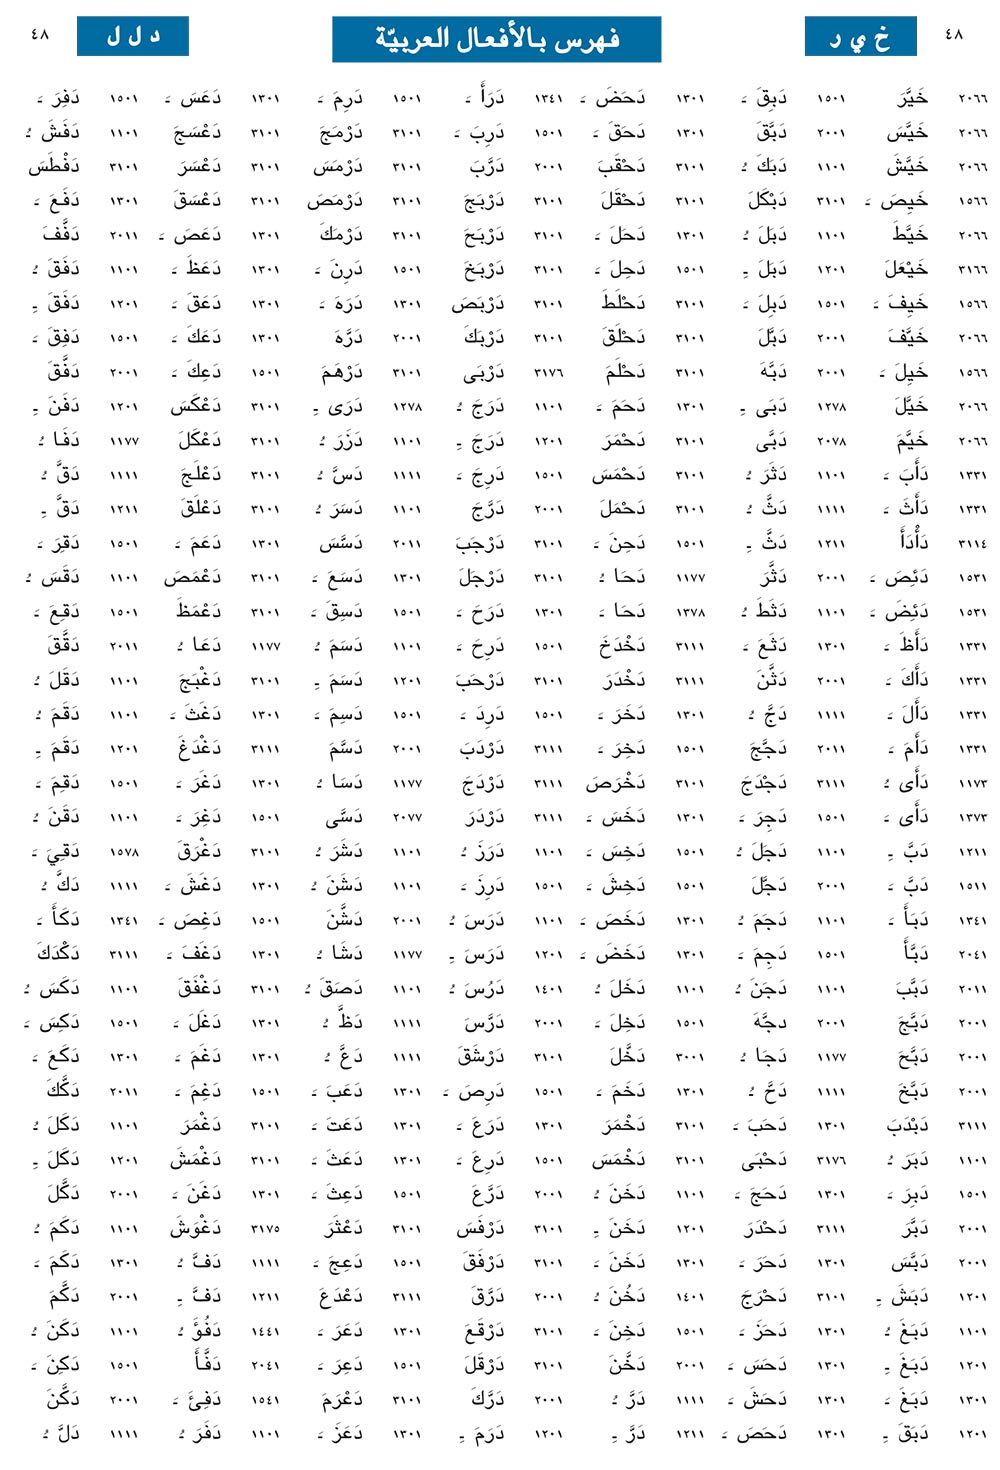 ٤٨ خ ي ر فهرس بالأفعال العربيّة د ل ل ٤٨
٢٠٦٦ خَيَّرَ ١٥٠١ دَبِقَ ـَ ١٣٠١ دَحَضَ ـَ ١٣٤١ دَرَأَ ـَ ١٥٠١ دَرِمَ ـَ ١٣٠١ دَعَسَ ـَ ١٥٠١ دَفِرَ ـَ
٢٠٦٦ خَيَّسَ ٢٠٠١ دَبَّقَ ١٣٠١ دَحَقَ ـَ ١٥٠١ دَرِبَ ـَ ٣١٠١ دَرْمَجَ ٣١٠١ دَعْسَجَ ١١٠١ دَفَشَ ـُ
٢٠٦٦ خَيَّشَ ١١٠١ دَبَكَ ـُ ٣١٠١ دَحْقَبَ ٢٠٠١ دَرَّبَ ٣١٠١ دَرْمَسَ ٣١٠١ دَعْسَرَ ٣١٠١ دَفْطَسَ
١٥٦٦ خَيِصَ ـَ ٣١٠١ دَبْكَلَ ٣١٠١ دَحْقَلَ ٣١٠١ دَرْبَجَ ٣١٠١ دَرْمَصَ ٣١٠١ دَعْسَقَ ١٣٠١ دَفَعَ ـَ
٢٠٦٦ خَيَّطَ ١١٠١ دَبَلَ ـُ ١٣٠١ دَحَلَ ـَ ٣١٠١ دَرْبَحَ ٣١٠١ دَرْمَكَ ١٣٠١ دَعَصَ ـَ ٢٠١١ دَفَّفَ
٣١٦٦ خَيْعَلَ ١٢٠١ دَبَلَ ـِ ١٥٠١ دَحِلَ ـَ ٣١٠١ دَرْبَخَ ١٥٠١ دَرِنَ ـَ ١٣٠١ دَعَظَ ـَ ١١٠١ دَفَقَ ـُ
١٥٦٦ خَيِفَ ـَ ١٥٠١ دَبِلَ ـَ ٣١٠١ دَحْلَطَ ٣١٠١ دَرْبَصَ ١٣٠١ دَرَهَ ـَ ١٣٠١ دَعَقَ ـَ ١٢٠١ دَفَقَ ـِ
٢٠٦٦ خَيَّفَ ٢٠٠١ دَبَّلَ ٣١٠١ دَحْلَقَ ٣١٠١ دَرْبَكَ ٢٠٠١ دَرَّهَ ١٣٠١ دَعَكَ ـَ ١٥٠١ دَفِقَ ـَ
١٥٦٦ خَيِلَ ـَ ٢٠٠١ دَبَّهَ ٣١٠١ دَحْلَمَ ٣١٧٦ دَرْبَى ٣١٠١ دَرْهَمَ ١٥٠١ دَعِكَ ـَ ٢٠٠١ دَفَّقَ
٢٠٦٦ خَيَّلَ ١٢٧٨ دَبَى ـِ ١٣٠١ دَحَمَ ـَ ١١٠١ دَرَجَ ـُ ١٢٧٨ دَرَى ـِ ٣١٠١ دَعْكَسَ ١٢٠١ دَفَنَ ـِ
٢٠٦٦ خَيَّمَ ٢٠٧٨ دَبَّى ٣١٠١ دَحْمَرَ ١٢٠١ دَرَجَ ـِ ١١٠١ دَزَرَ ـُ ٣١٠١ دَعْكَلَ ١١٧٧ دَفَا ـُ
١٣٣١ دَأَبَ ـَ ١١٠١ دَثَرَ ـُ ٣١٠١ دَحْمَسَ ١٥٠١ دَرِجَ ـَ ١١١١ دَسَّ ـُ ٣١٠١ دَعْلَجَ ١١١١ دَقَّ ـُ
١٣٣١ دَأَثَ ـَ ١١١١ دَثَّ ـُ ٣١٠١ دَحْمَلَ ٢٠٠١ دَرَّجَ ١١٠١ دَسَرَ ـُ ٣١٠١ دَعْلَقَ ١٢١١ دَقَّ ـِ
٣١١٤ دَأْدَأَ ١٢١١ دَثَّ ـِ ١٥٠١ دَحِنَ ـَ ٣١٠١ دَرْجَبَ ٢٠١١ دَسَّسَ ١٣٠١ دَعَمَ ـَ ١٥٠١ دَقِرَ ـَ
١٥٣١ دَئِصَ ـَ ٢٠٠١ دَثَّرَ ١١٧٧ دَحَا ـُ ٣١٠١ دَرْجَلَ ١٣٠١ دَسَعَ ـَ ٣١٠١ دَعْمَصَ ١١٠١ دَقَسَ ـُ
١٥٣١ دَئِضَ ـَ ١١٠١ دَثَطَ ـُ ١٣٧٨ دَحَا ـَ ١٣٠١ دَرَحَ ـَ ١٥٠١ دَسِقَ ـَ ٣١٠١ دَعْمَظَ ١٥٠١ دَقِعَ ـَ
١٣٣١ دَأَظَ ـَ ١٣٠١ دَثَعَ ـَ ٣١١١ دَخْدَخَ ١٥٠١ دَرِحَ ـَ ١١٠١ دَسَمَ ـُ ١١٧٧ دَعَا ـُ ٢٠١١ دَقَّقَ
١٣٣١ دَأَكَ ـَ ٢٠٠١ دَثَّنَ ٣١١١ دَخْدَرَ ٣١٠١ دَرْحَبَ ١٢٠١ دَسَمَ ـِ ٣١٠١ دَغْبَجَ ١١٠١ دَقَلَ ـُ
١٣٣١ دَأَلَ ـَ ١١١١ دَجَّ ـُ ١٣٠١ دَخَرَ ـَ ١٥٠١ دَرِدَ ـَ ١٥٠١ دَسِمَ ـَ ١٣٠١ دَغَثَ ـَ ١١٠١ دَقَمَ ـُ
١٣٣١ دَأَمَ ـَ ٢٠١١ دَجَّجَ ١٥٠١ دَخِرَ ـَ ٣١١١ دَرْدَبَ ٢٠٠١ دَسَّمَ ٣١١١ دَغْدَغَ ١٢٠١ دَقَمَ ـِ
١١٧٣ دَأَى ـُ ٣١١١ دَجْدَجَ ٣١٠١ دَخْرَصَ ٣١١١ دَرْدَجَ ١١٧٧ دَسَا ـُ ١٣٠١ دَغَرَ ـَ ١٥٠١ دَقِمَ ـَ
١٣٧٣ دَأَى ـَ ١٥٠١ دَجِرَ ـَ ١٣٠١ دَخَسَ ـَ ٣١١١ دَرْدَرَ ٢٠٧٧ دَسَّى ١٥٠١ دَغِرَ ـَ ١١٠١ دَقَنَ ـُ
١٢١١ دَبَّ ـِ ١١٠١ دَجَلَ ـُ ١٥٠١ دَخِسَ ـَ ١١٠١ دَرَزَ ـُ ١١٠١ دَشَرَ ـُ ٣١٠١ دَغْرَقَ ١٥٧٨ دَقِيَ ـَ
١٥١١ دَبَّ ـَ ٢٠٠١ دَجَّلَ ١٥٠١ دَخِشَ ـَ ١٥٠١ دَرِزَ ـَ ١١٠١ دَشَنَ ـُ ١٣٠١ دَغَشَ ـَ ١١١١ دَكَّ ـُ
١٣٤١ دَبَأَ ـَ ١١٠١ دَجَمَ ـُ ١٣٠١ دَخَصَ ـَ ١١٠١ دَرَسَ ـُ ٢٠٠١ دَشَّنَ ١٥٠١ دَغِصَ ـَ ١٣٤١ دَكَأَ ـَ
٢٠٤١ دَبَّأَ ١٥٠١ دَجِمَ ـَ ١٣٠١ دَخَضَ ـَ ١٢٠١ دَرَسَ ـِ ١١٧٧ دَشَا ـُ ١٣٠١ دَغَفَ ـَ ٣١١١ دَكْدَكَ
٢٠١١ دَبَّبَ ١١٠١ دَجَنَ ـُ ١١٠١ دَخَلَ ـُ ١٤٠١ دَرُسَ ـُ ١١٠١ دَصَقَ ـُ ٣١٠١ دَغْفَقَ ١١٠١ دَكَسَ ـُ
٢٠٠١ دَبَّجَ ٢٠٠١ دجَّهَ ١٥٠١ دَخِلَ ـَ ٢٠٠١ دَرَّسَ ١١١١ دَظَّ ـُ ١٣٠١ دَغَلَ ـَ ١٥٠١ دَكِسَ ـَ
٢٠٠١ دَبَّحَ ١١٧٧ دَجَا ـُ ٣٠٠١ دَخَّلَ ٣١٠١ دَرْشَقَ ١١١١ دَعَّ ـُ ١٣٠١ دَغَمَ ـَ ١٣٠١ دَكَعَ ـَ
٢٠٠١ دَبَّخَ ١١١١ دَحَّ ـُ ١٣٠١ دَخَمَ ـَ ١٥٠١ دَرِصَ ـَ ١٣٠١ دَعَبَ ـَ ١٥٠١ دَغِمَ ـَ ٢٠١١ دَكَّكَ
٣١١١ دَبْدَبَ ١٣٠١ دَحَبَ ـَ ٣١٠١ دَخْمَرَ ١٣٠١ دَرَعَ ـَ ١٣٠١ دَعَتَ ـَ ٣١٠١ دَغْمَرَ ١١٠١ دَكَلَ ـُ
١١٠١ دَبَرَ ـُ ٣١٧٦ دَحْبَى ٣١٠١ دَخْمَسَ ١٥٠١ دَرِعَ ـَ ١٣٠١ دَعَثَ ـَ ٣١٠١ دَغْمَشَ ١٢٠١ دَكَلَ ـِ
١٥٠١ دَبِرَ ـَ ١٣٠١ دَحَجَ ـَ ١١٠١ دَخَنَ ـُ ٢٠٠١ دَرَّعَ ١٥٠١ دَعِثَ ـَ ١٣٠١ دَغَنَ ـَ ٢٠٠١ دَكَّلَ
٢٠٠١ دَبَّرَ ٣١١١ دَحْدَرَ ١٢٠١ دَخَنَ ـِ ٣١٠١ دَرْفَسَ ٣١٠١ دَعْثَرَ ٣١٧٥ دَغْوَشَ ١١٠١ دَكَمَ ـُ
٢٠٠١ دَبَّسَ ١٣٠١ دَحَرَ ـَ ١٣٠١ دَخَنَ ـَ ٣١٠١ دَرْفَقَ ١٥٠١ دَعِجَ ـَ ١١١١ دَفَّ ـُ ١٣٠١ دَكَمَ ـَ
١٢٠١ دَبَشَ ـِ ٣١٠١ دَحْرَجَ ١٤٠١ دَخُنَ ـُ ٢٠٠١ دَرَّقَ ٣١١١ دَعْدَعَ ١٢١١ دَفَّ ـِ ٢٠٠١ دَكَّمَ
١١٠١ دَبَغَ ـُ ١٣٠١ دَحَزَ ـَ ١٥٠١ دَخِنَ ـَ ٣١٠١ دَرْقَعَ ١٣٠١ دَعَرَ ـَ ١٤٤١ دَفُؤَ ـُ ١١٠١ دَكَنَ ـُ
١٢٠١ دَبَغَ ـِ ١٣٠١ دَحَسَ ـَ ٢٠٠١ دَخَّنَ ٣١٠١ دَرْقَلَ ١٥٠١ دَعِرَ ـَ ٢٠٤١ دَفَّأَ ١٥٠١ دَكِنَ ـَ
١٣٠١ دَبَغَ ـَ ١٣٠١ دَحَشَ ـَ ١١١١ دَرَّ ـُ ٢٠٠١ دَرَّكَ ٣١٠١ دَعْرَمَ ١٥٤١ دَفِئَ ـَ ٢٠٠١ دَكَّنَ
١٢٠١ دَبَقَ ـِ ١٣٠١ دَحَصَ ـَ ١٢١١ دَرَّ ـِ ١٢٠١ دَرَمَ ـِ ١٣٠١ دَعَزَ ـَ ١١٠١ دَفَرَ ـُ ١١١١ دَلَّ ـُ